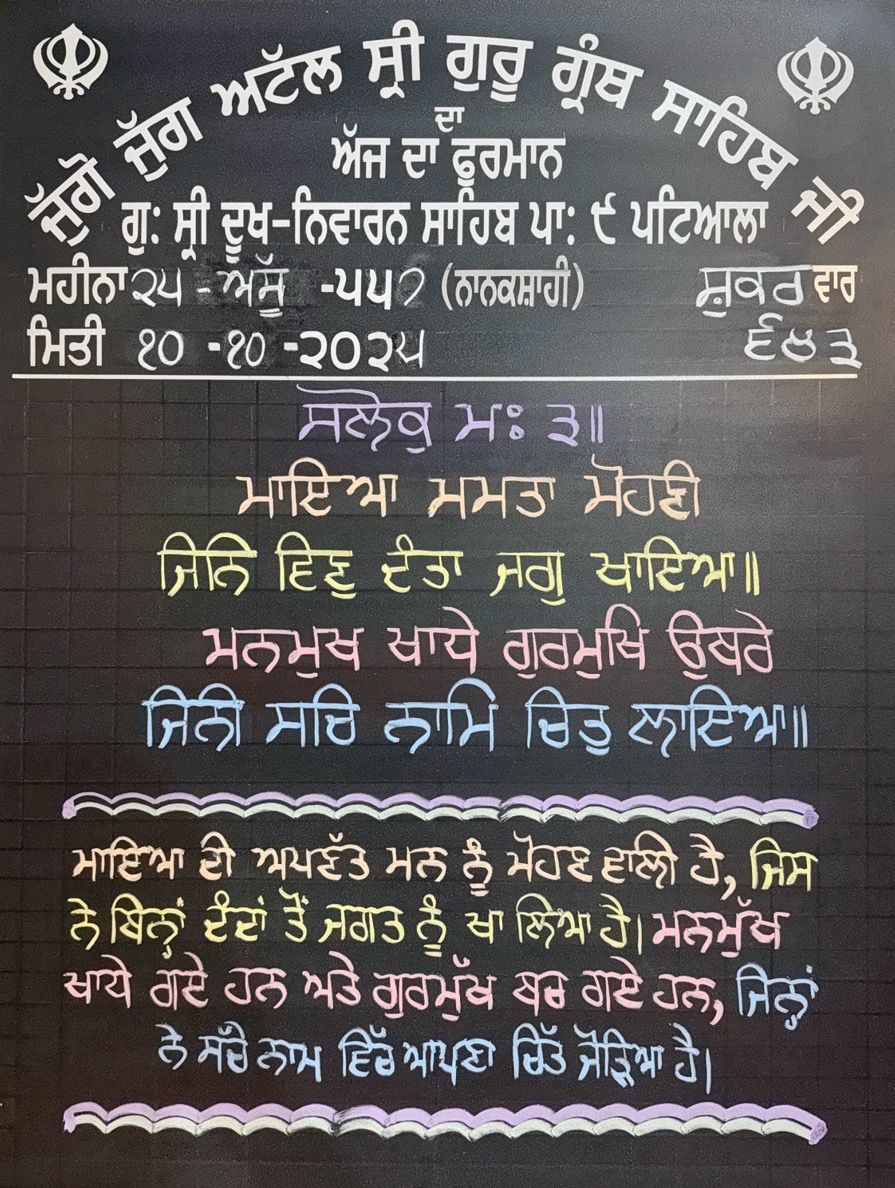 ਜੁੱਗੋ ਜੁੱਗ ਅਟੱਲ ਸ੍ਰੀ ਗੁਰੂ ਗ੍ਰੰਥ ਸਾਹਿਬ ਜੀ
ਦਾ
ਅੱਜ ਦਾ ਫੁਰਮਾਨ
ਗੁ: ਸ੍ਰੀ ਦੂਖ-ਨਿਵਾਰਨ ਸਾਹਿਬ ਪਾ: ੯ ਪਟਿਆਲਾ
ਮਹੀਨਾ ੨੫ - ਅੱਸੂ -੫੫੭ (ਨਾਨਕਸ਼ਾਹੀ) ਸ਼ੁਕਰ ਵਾਰ
ਮਿਤੀ ੧੦ -੧੦ -੨੦੨੫ ੬੪੩
ਸਲੋਕੁ ਮਃ ੩॥
ਮਾਇਆ ਮਮਤਾ ਮੋਹਣੀ
ਜਿਨਿ ਵਿਣੁ ਦੰਤਾ ਜਗੁ ਖਾਇਆ॥
ਮਨਮੁਖ ਖਾਧੇ ਗੁਰਮੁਖਿ ਉਬਰੇ
ਜਿਨੀ ਸਚਿ ਨਾਮਿ ਚਿਤੁ ਲਾਇਆ॥
ਮਾਇਆ ਦੀ ਅਪਣੱਤ ਮਨ ਨੂੰ ਮੋਹਣ ਵਾਲੀ ਹੈ, ਜਿਸ
ਨੇ ਬਿਨ੍ਹਾਂ ਦੰਦਾਂ ਤੋਂ ਜਗਤ ਨੂੰ ਖਾ ਲਿਆ ਹੈ। ਮਨਮੁੱਖ
ਖਾਧੇ ਗਏ ਹਨ ਅਤੇ ਗੁਰਮੁੱਖ ਬਚ ਗਏ ਹਨ, ਜਿਨ੍ਹਾਂ
ਨੇ ਸੱਚੇ ਨਾਮ ਵਿੱਚ ਆਪਣਾ ਚਿੱਤ ਜੋੜਿਆ ਹੈ।